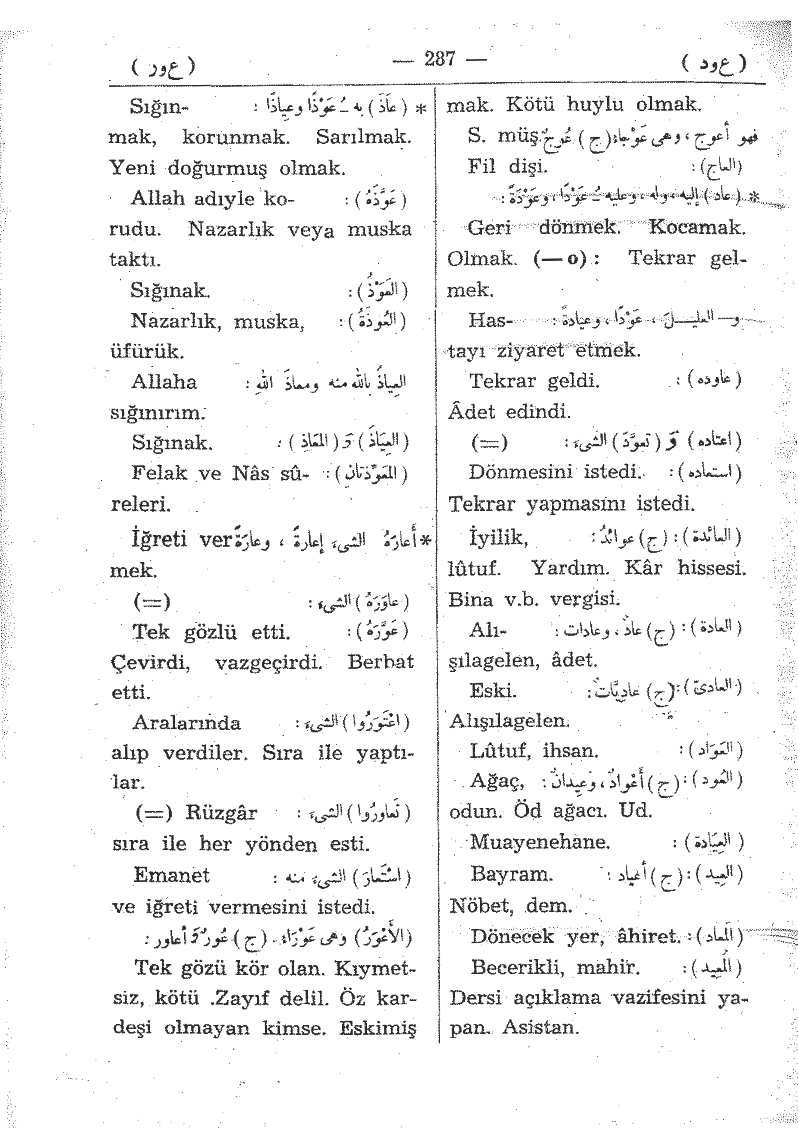 ( عود )
— 287 —
( عور )
mak. Kötü huylu olmak.
فهو أعوج ، وهى عَوْجاء (ج) عُوج. S. müş.
(العاج) : Fil dişi.
* (عاد) إليه ، وله ، وعليه ـُ عَوْدًا ، وعَوْدَةً :
Geri dönmek. Kocamak.
Olmak. (— o) : Tekrar gel-
mek.
و— العليـلَ ، عَوْدًا ، وعيادةً : Has-
tayı ziyaret etmek.
(عاوده) : Tekrar geldi.
Âdet edindi.
(اعتاده) وَ (تعوَّدَ) الشىءَ : (=)
(استعاده) : Dönmesini istedi.
Tekrar yapmasını istedi.
(العائدة) : (ج) عوائدُ : İyilik,
lûtuf. Yardım. Kâr hissesi.
Bina v.b. vergisi.
(العادة) : (ج) عادٌ ، وعادات : Alı-
şılagelen, âdet.
(العادىّ) : (ج) عاديَّات : Eski.
Alışılagelen.
(العَوَاد) : Lûtuf, ihsan.
(العُود) : (ج) أعْوادٌ ، وعِيدانٌ : Ağaç,
odun. Öd ağacı. Ud.
(العِيَادة) : Muayenehane.
(العِيد) : (ج) أعياد : Bayram.
Nöbet, dem.
(المَعاد) : Dönecek yer, âhiret.
(المُعِيد) : Becerikli, mahir.
Dersi açıklama vazifesini ya-
pan. Asistan.
* (عاذَ) به ـُ عَوْذًا وعياذًا : Sığın-
mak, korunmak. Sarılmak.
Yeni doğurmuş olmak.
(عَوَّذَهُ) : Allah adıyle ko-
rudu. Nazarlık veya muska
taktı.
(العَوَذُ) : Sığınak.
(العُوذَةُ) : Nazarlık, muska,
üfürük.
العياذُ بالله منه ومعاذَ اللهِ : Allaha
sığınırım.
(العِيَاذ) وَ (المَعَاذ) : Sığınak.
(المعَوِّذتان) : Felak ve Nâs sû-
releri.
* أعارَهُ الشىءَ إعارةً ، وعارَةً İğreti ver-
mek.
(عاوَرَهُ) الشىءَ : (=)
(عَوَّرَهُ) : Tek gözlü etti.
Çevirdi, vazgeçirdi. Berbat
etti.
(اعْتَوَرُوا) الشىءَ : Aralarında
alıp verdiler. Sıra ile yaptı-
lar.
(تعاورُوا) الشىءَ : (=) Rüzgâr
sıra ile her yönden esti.
(اسْتَعارَ) الشىءَ منه : Emanet
ve iğreti vermesini istedi.
(الأَعْوَرُ) وهى عَوْرَاء. (ج) عُورٌ وَ أعاور :
Tek gözü kör olan. Kıymet-
siz, kötü .Zayıf delil. Öz kar-
deşi olmayan kimse. Eskimiş